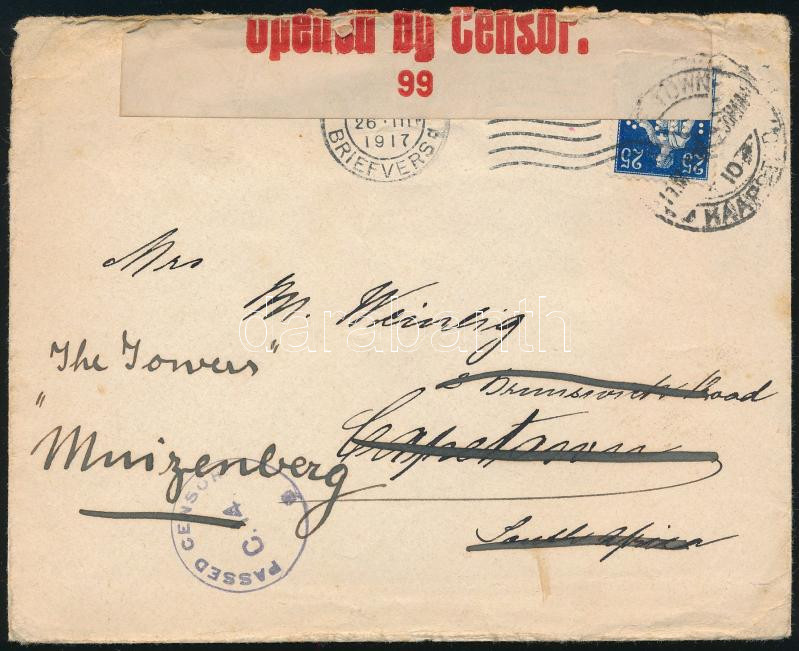 Opened by Censor.
99
26·III
1917
BRIEFVERS
TOWN
10
KAAPST
25 25
Mrs
M. Weinrig
"The Towers"
Muizenberg
8 Brunswick Road
Capetown
South Africa
PASSED CENSOR
C. A
darabanth